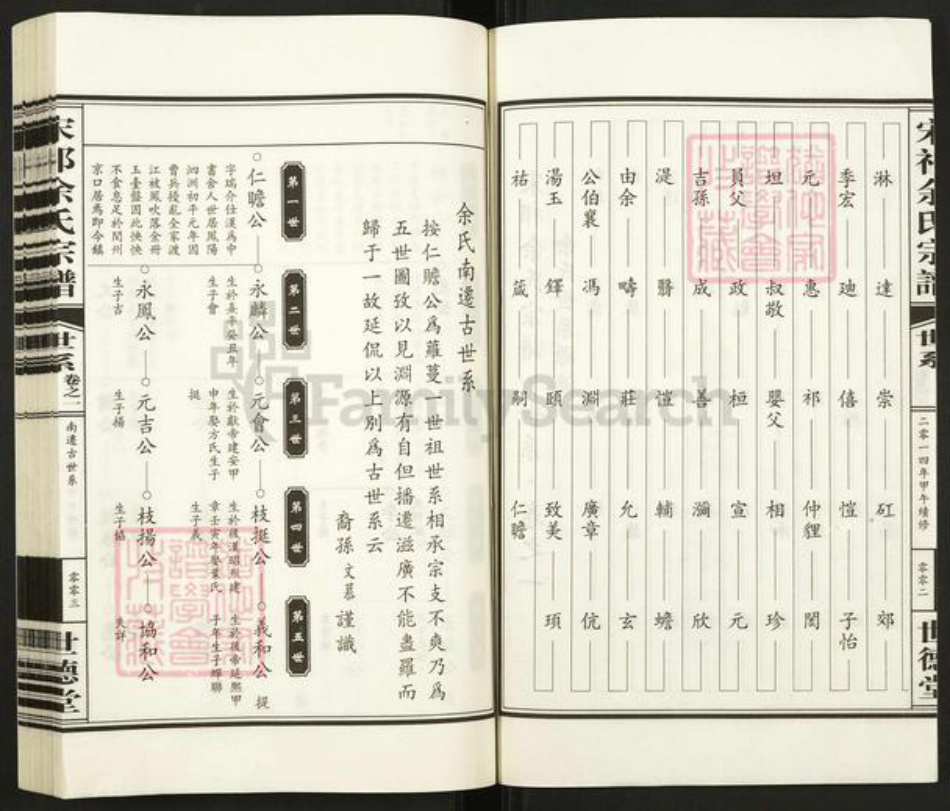 淋 達 崇 矼 郊
季宏 廸 僖 愷 子怡
元 惠 祁 仲貍 閭
坦 叔敬 嬰父 相 珍
員父 政 桓 宣 元
吉孫 成 善 瀰 欣
湜 翳 愷 輔 蟾
由余 疇 莊 允 玄
公伯襄 馮 淵 廣章 伉
湯玉 鐸 頤 致美 頊
祐 葴 嗣 仁瞻
世系
二〇一四年甲午續修
零零二
世德堂
余氏南遷古世系
按仁瞻公爲蘿蔓一世祖世系相承宗支不爽乃爲
五世圖攷以見淵源有自但播遷滋廣不能盡羅而
歸于一故延侃以上別爲古世系云
裔孫文慕謹識
第一世
第二世
第三世
第四世
第五世
仁瞻公
字瑞介仕漢爲中
書舍人世居鳳陽
泗洲初平元年因
曹兵擾亂全家渡
江被風吹落金冊
玉臺盤因此怏怏
不食息足於閏州
京口居焉即今鎮
永麟公
生於熹平癸丑年
生子會
元會公
生於獻帝建安甲
申年娶方氏生子
挺
枝挺公
生於後漢昭烈建
章壬寅年娶葉氏
生子義
義和公
生於後帝延熙甲
子年生子暉聯
提
永鳳公
生子吉
元吉公
生子揚
枝揚公
生子協
協和公
失詳
宋祁余氏宗譜
世系
卷之一
南遷古世系
零零三
世德堂
FamilySearch